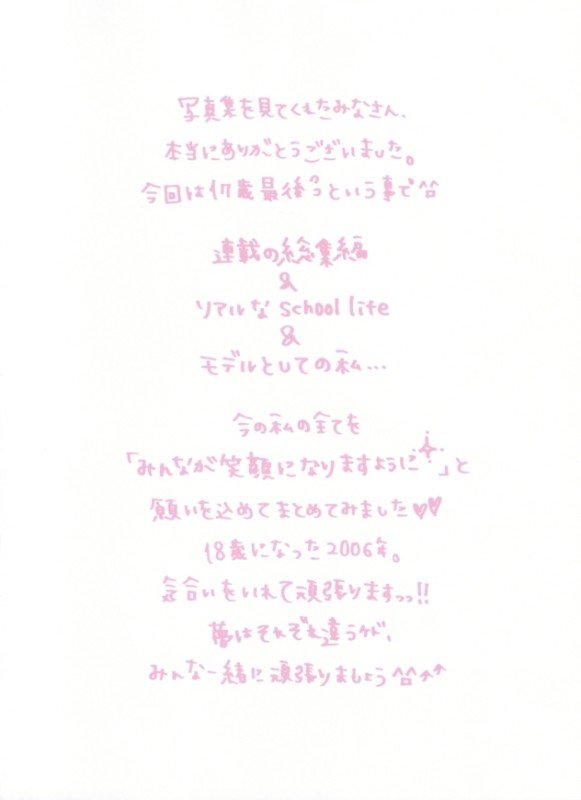 写真集を見てくれたみなさん、
本当にありがとうございました。
今回は17歳最後っという事で^^
連載の総集編
&
リアルなschool life
&
モデルとしての私…
今の私の全てを
「みんなが笑顔になりますように」と
願いを込めてまとめてみました♥♥
18歳になった2006年。
気合いをいれて頑張りますっっ!!
夢はそれぞれ違うケド、
みんな一緒に頑張りましょう^^↑↑